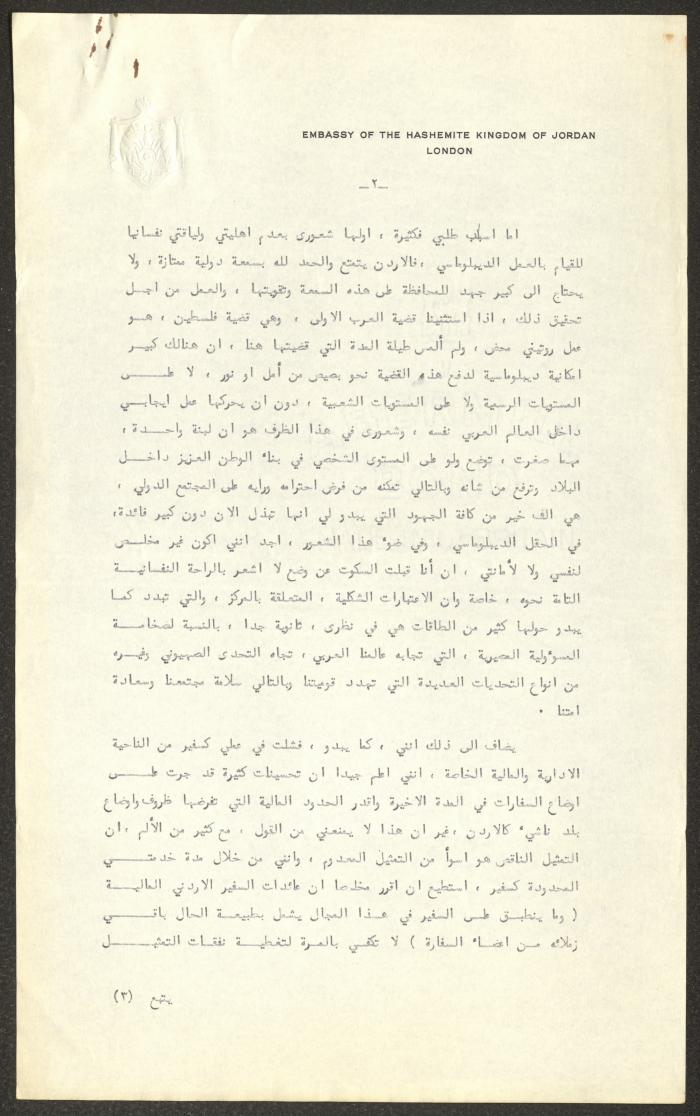 EMBASSY OF THE HASHEMITE KINGDOM OF JORDAN
LONDON
ـ٢ـ
اما اسباب طلبي فكثيرة ، اولها شعورى بعدم اهليتي ولياقتي نفسانيا
للقيام بالعمل الديبلوماسي ، فالاردن يتمتع والحمد لله بسمعة دولية ممتازة ، ولا
يحتاج الى كبير جهد للمحافظة على هذه السمعة وتقويتها ، والعمل من اجل
تحقيق ذلك ، اذا استثنينا قضية العرب الاولى ، وهي قضية فلسطين ، هو
عمل روتيني محض ، ولم ألمس طيلة المدة التي قضيتها هنا ، ان هنالك كبير
امكانية ديبلوماسية لدفع هذه القضية نحو بصيص من أمل او نور ، لا على
المستويات الرسمية ولا على المستويات الشعبية ، دون ان يحركها عمل ايجابي
داخل العالم العربي نفسه ، وشعورى في هذا الظرف هو ان لبنة واحدة ،
مهما صغرت ، توضع ولو على المستوى الشخصي في بناء الوطن العزيز داخل
البلاد وترفع من شانه وبالتالي تمكنه من فرض احترامه ورايه على المجتمع الدولي ،
هي الف خير من كافة الجهود التي يبدو لي انها تبذل الان دون كبير فائدة ،
في الحقل الديبلوماسي ، وفي ضوء هذا الشعور ، اجد انني اكون غير مخلص
لنفسي ولا لأمانتي ، ان أنا قبلت السكوت عن وضع لا اشعر بالراحة النفسانية
التامة نحوه ، خاصة وان الاعتبارات الشكلية ، المتعلقة بالمركز ، والتي تبدد كما
يبدو حولها كثير من الطاقات هي في نظرى ، ثانوية جدا ، بالنسبة لضخامة
المسؤولية المصيرية ، التي تجابه عالمنا العربي ، تجاه التحدى الصهيوني وغيره
من انواع التحديات العديدة التي تهدد قوميتنا وبالتالي سلامة مجتمعنا وسعادة
امتنا .
يضاف الى ذلك انني ، كما يبدو ، فشلت في عملي كسفير من الناحية
الادارية والمالية الخاصة ، انني اعلم جيدا ان تحسينات كثيرة قد جرت على
اوضاع السفارات في المدة الاخيرة واقدر الحدود المالية التي تفرضها ظروف واوضاع
بلد ناشيء كالاردن ، غير ان هذا لا يمنعني من القول ، مع كثير من الألم ، ان
التمثيل الناقص هو اسوأ من التمثيل المعدوم ، وانني من خلال مدة خدمتي
المحدودة كسفير ، استطيع ان اقرر مخلصا ان عائدات السفير الاردني المالية
( وما ينطبق على السفير في هذا المجال يشمل بطبيعة الحال باقي
زملائه من اعضاء السفارة ) لا تكفي بالمرة لتغطية نفقات التمثيل
يتبع (٣)